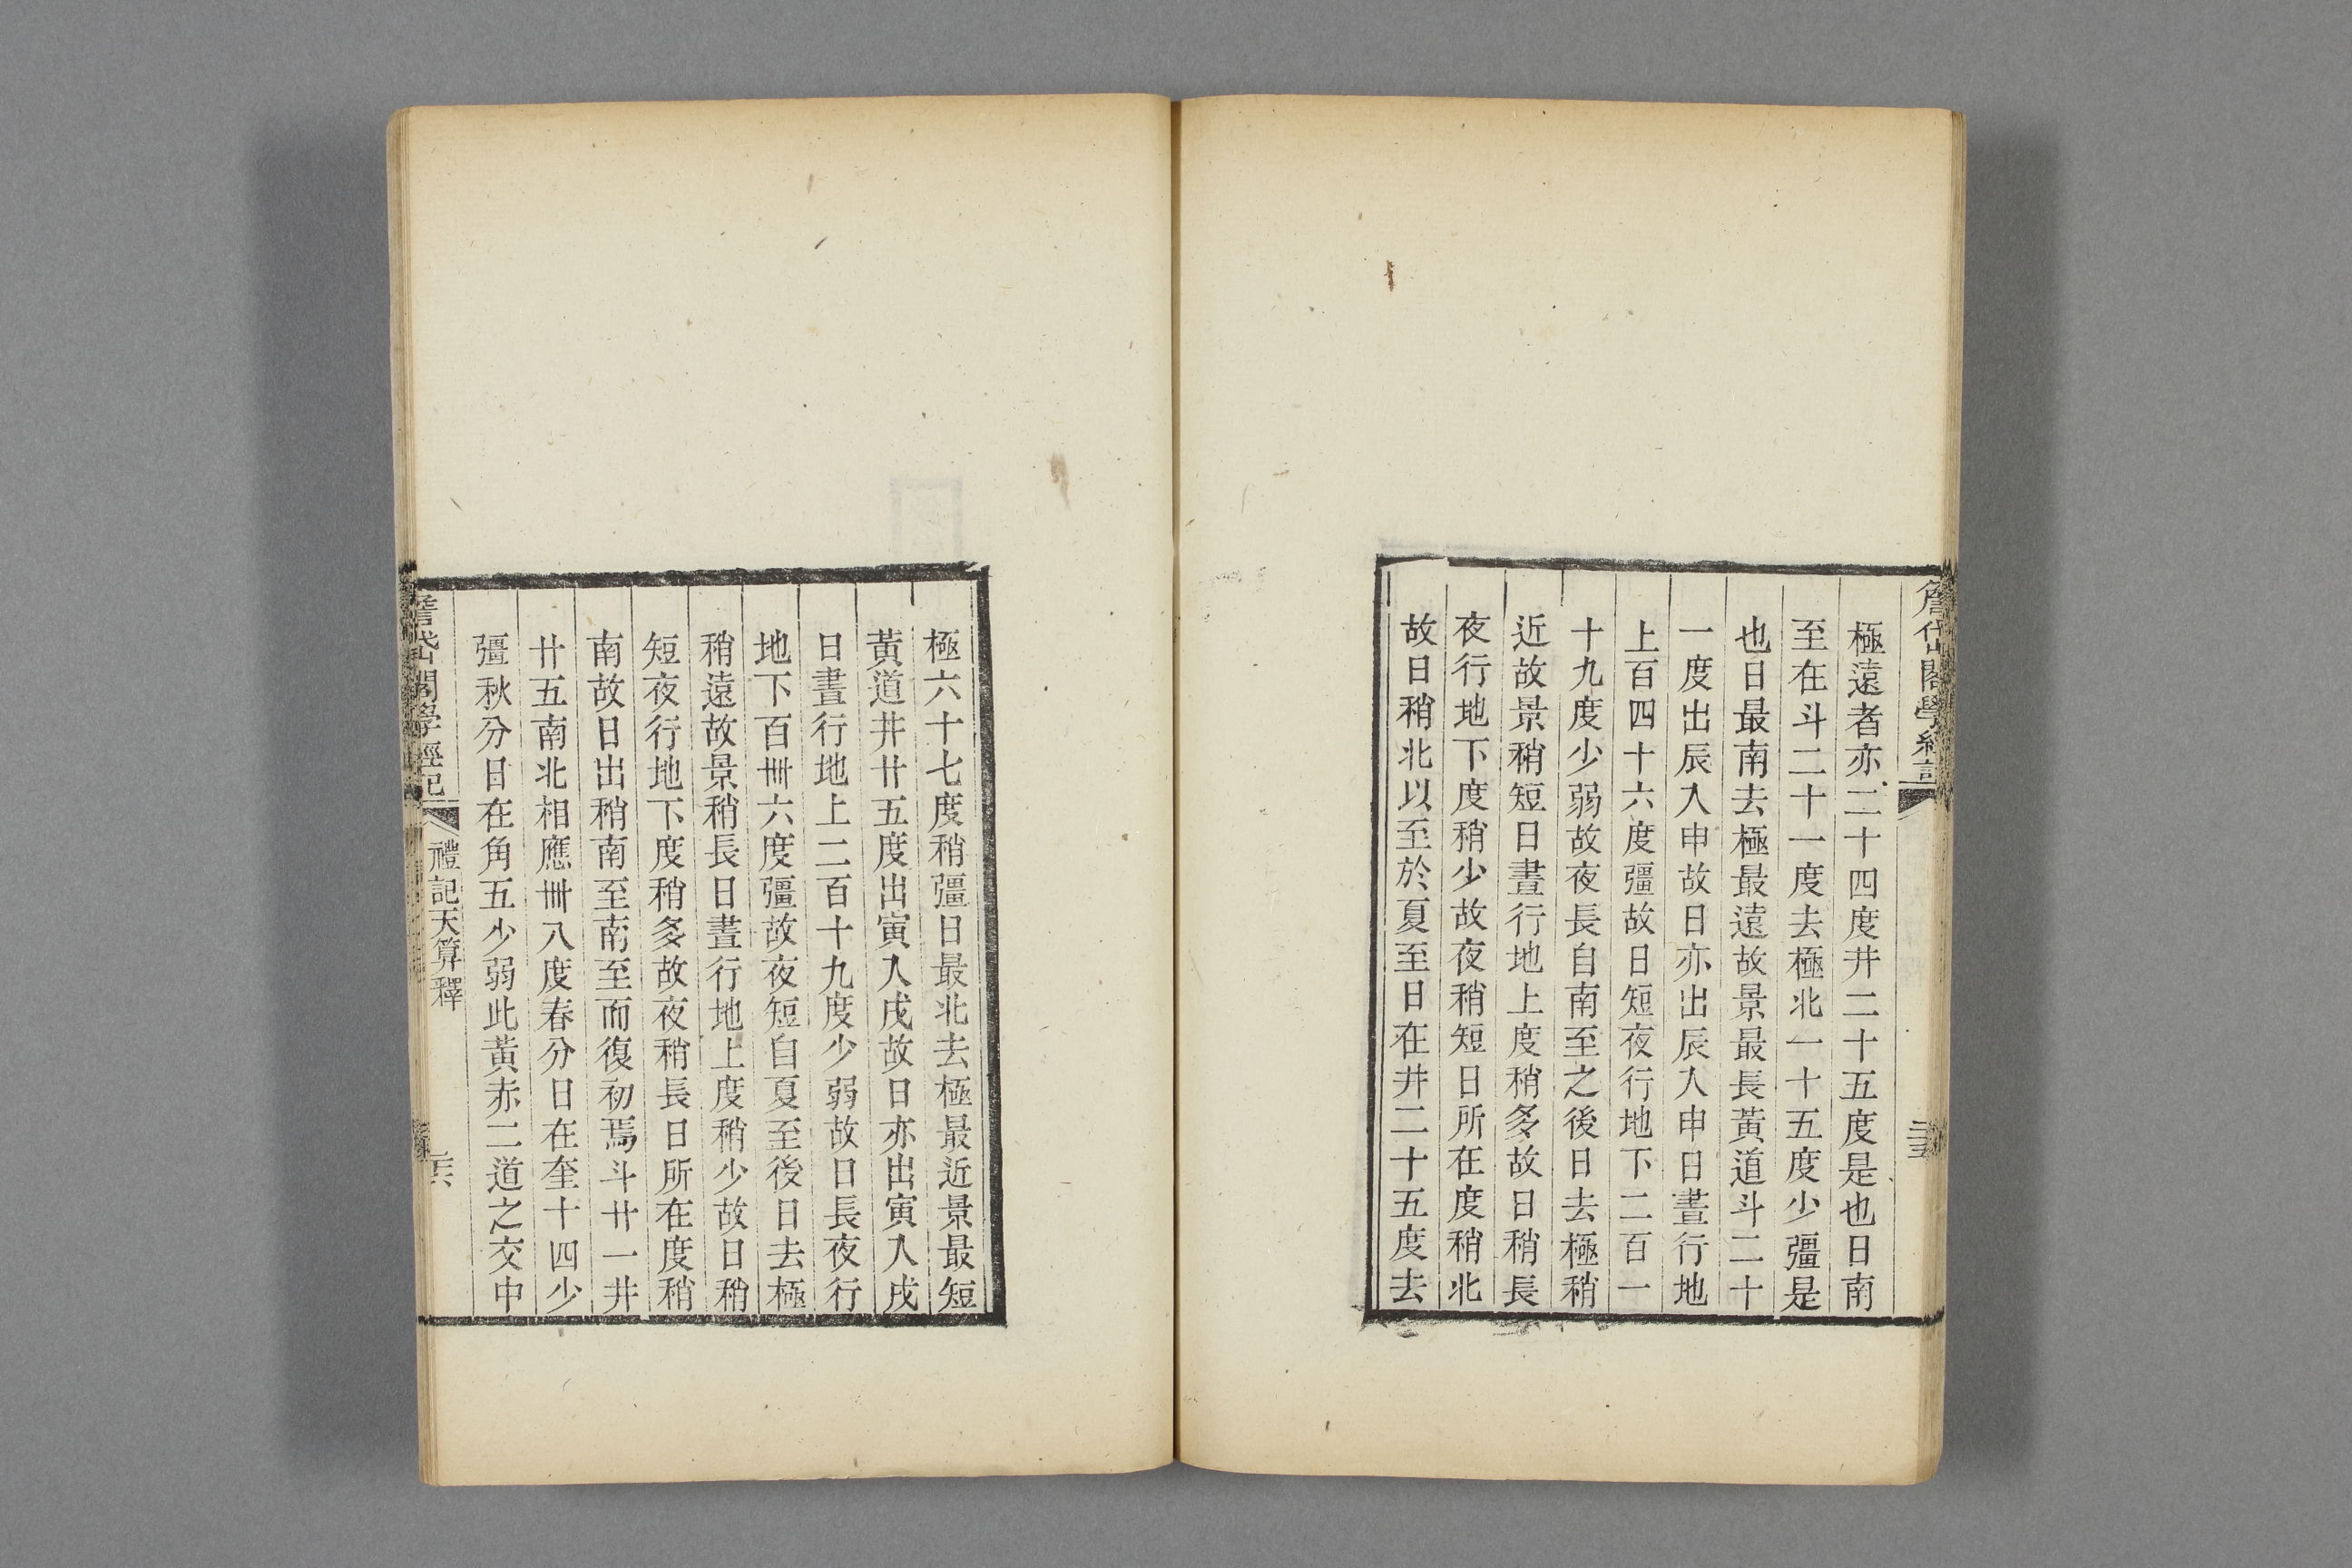 詹岱閣學經記
二十五
極遠者亦二十四度井二十五度是也日南
至在斗二十一度去極北一十五度少彊是
也日最南去極最遠故景最長黃道斗二十
一度出辰入申故日亦出辰入申日晝行地
上百四十六度彊故日短夜行地下二百一
十九度少弱故夜長自南至之後日去極稍
近故景稍短日晝行地上度稍多故日稍長
夜行地下度稍少故夜稍短日所在度稍北
故日稍北以至於夏至日在井二十五度去
極六十七度稍彊日最北去極最近景最短
黃道井廿五度出寅入戌故日亦出寅入戌
日晝行地上二百十九度少弱故日長夜行
地下百卌六度彊故夜短自夏至後日去極
稍遠故景稍長日晝行地上度稍少故日稍
短夜行地下度稍多故夜稍長日所在度稍
南故日出稍南至南至而復初焉斗廿一井
廿五南北相應卌八度春分日在奎十四少
彊秋分日在角五少弱此黃赤二道之交中
詹岱閣學經記
禮記天算釋
二十六